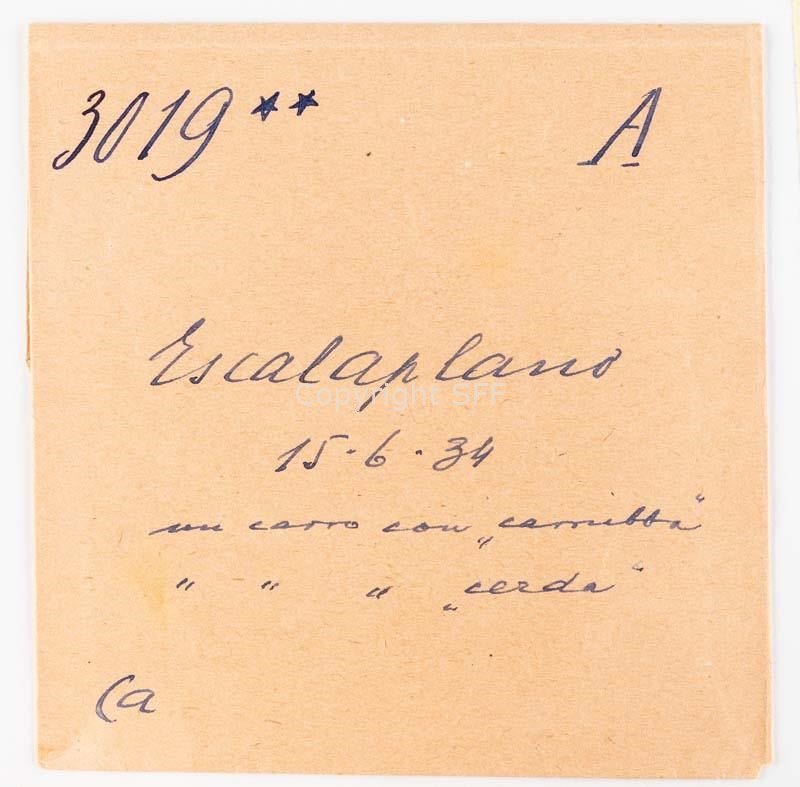 3019 ** A
Escalaplano
Copyright SFF
15·6·34
un carro con „carrubba"
" " " „cerda"
Ca